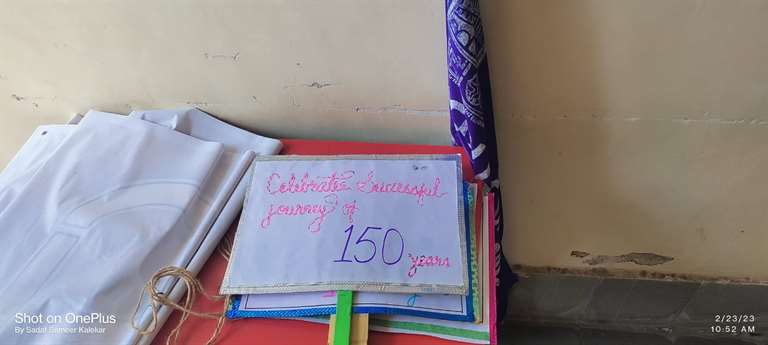 Celebrate Successful
journey of
150 years
Shot on OnePlus
By Sadaf Sameer Kalekar
2/23/23
10:52 AM